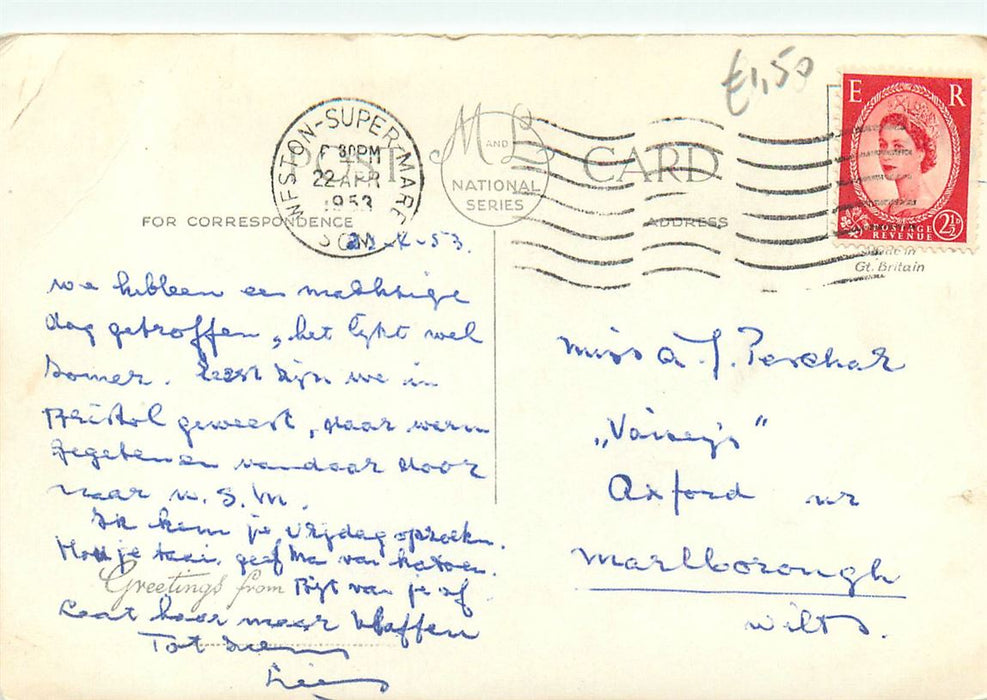 £1,50
E R
WESTON-SUPER-MARE
30PM
22 APR
1953
SOM
POST CARD
M AND L
NATIONAL
SERIES
FOR CORRESPONDENCE
ADDRESS
POSTAGE
REVENUE
2½D
Gt. Britain
53
we hebben een machtige
dag getroffen, het lijkt wel
Somer. Eerst zijn we in
Bristol geweest, daar warm
gegeten en vandaar door
naar W. S. M.
Ik kom je vrijdag opzoeken.
Hou je taai, geef Ma van katoen.
Greetings from
Bijt van je af
Laat haar maar blaffen
Tot ziens
Miss A. J. Peschar
„Vaisey's"
Axford nr
Marlborough
Wilts.